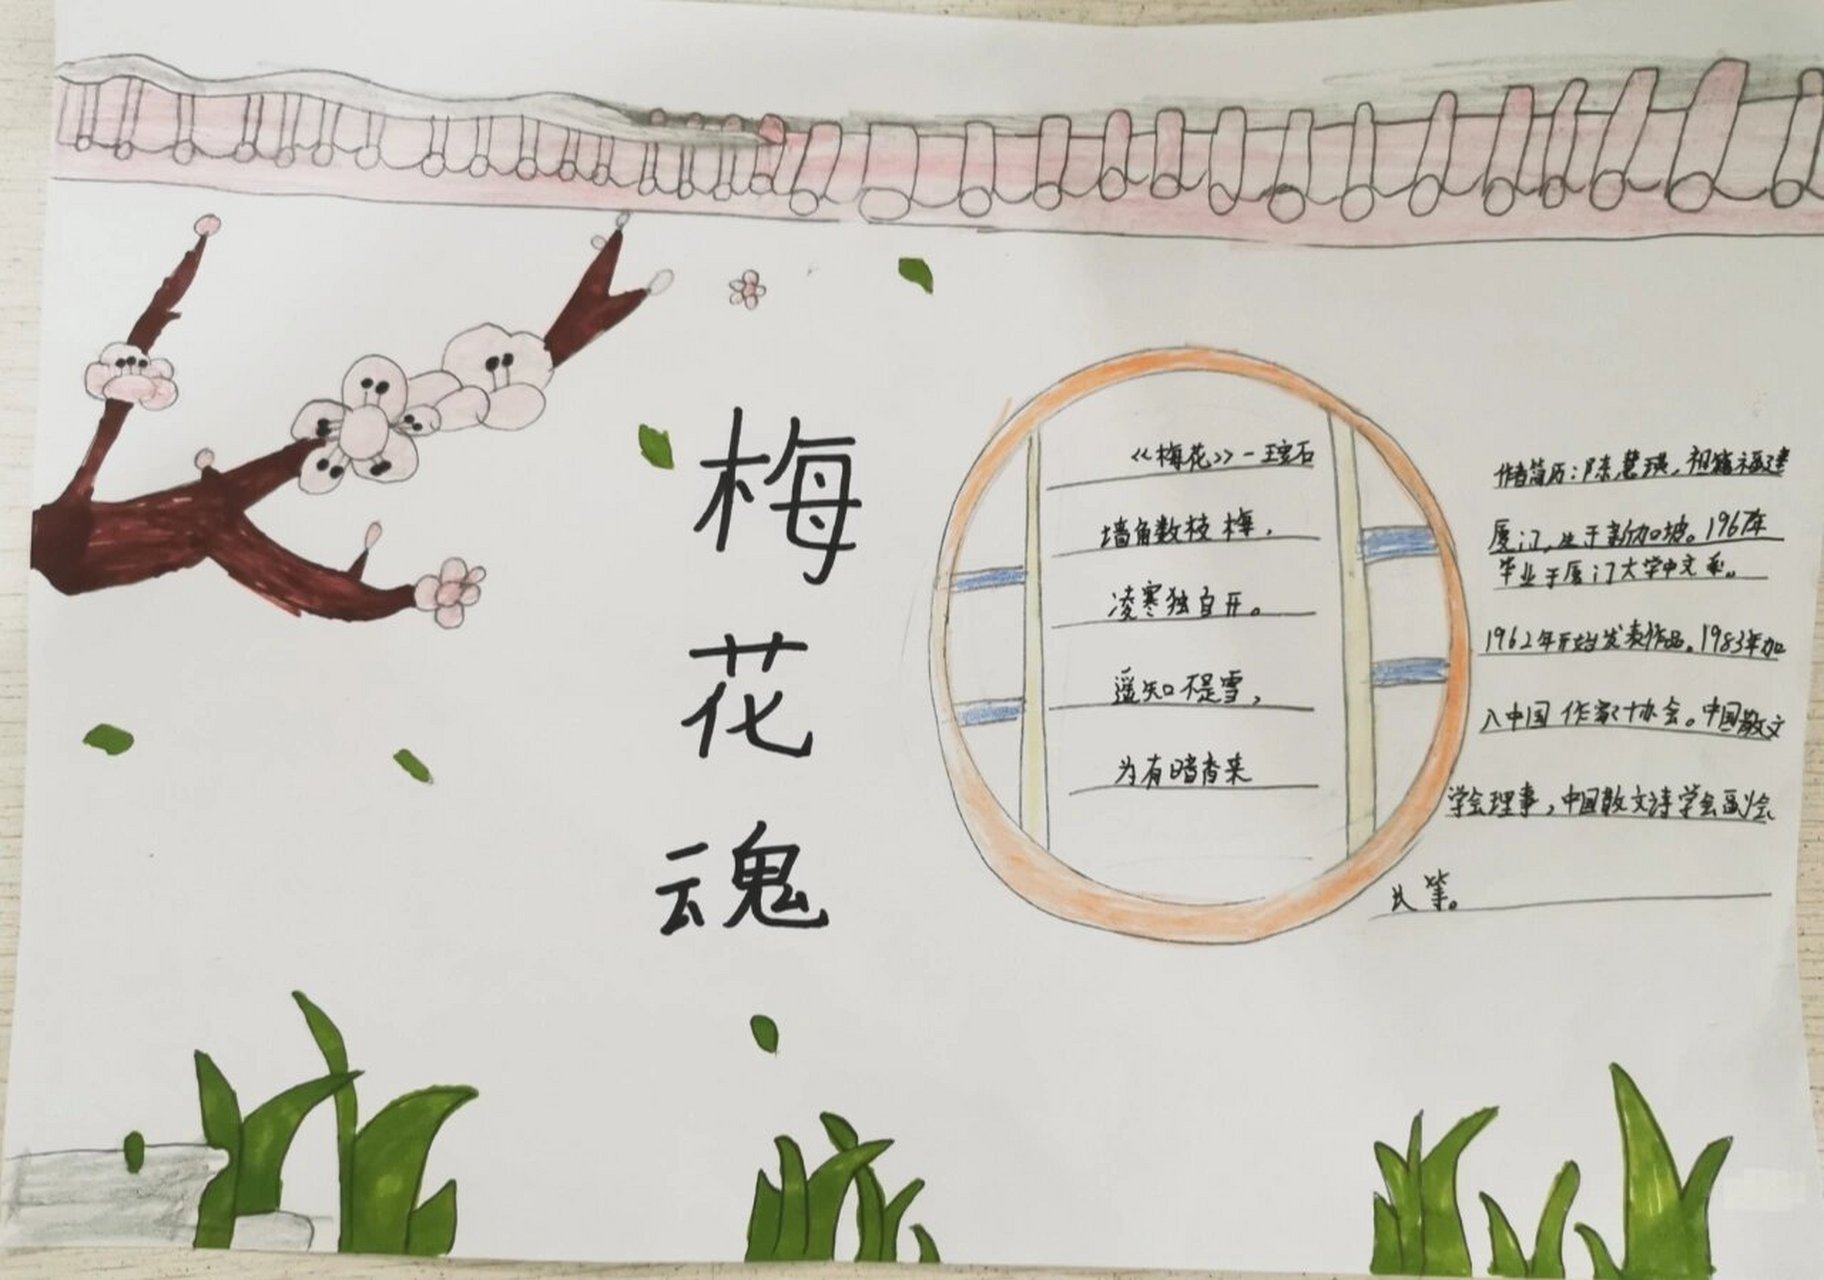 梅
花
魂
《梅花》-王安石
墙角数枝梅，
凌寒独自开。
遥知不是雪，
为有暗香来
作者简历：陈慧瑛，祖籍福建
厦门，生于新加坡。1967年
毕业于厦门大学中文系。
1962年开始发表作品。1983年加
入中国作家协会。中国散文
学会理事，中国散文诗学会副会
长等。